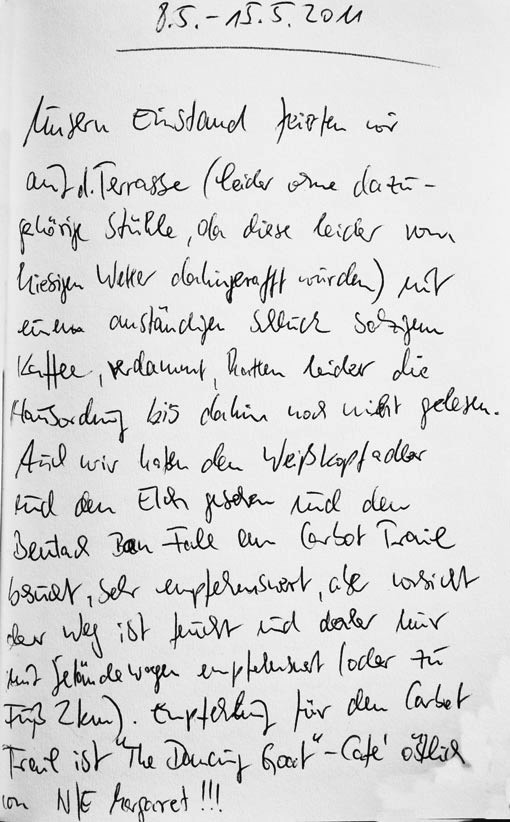 8.5. - 15.5. 2011
Unsern Einstand feierten wir
auf d. Terrasse (leider ohne dazu-
gehörige Stühle, da diese leider vom
hiesigen Wetter dahingerafft wurden) mit
einem anständigen Schluck salzigem
Kaffee, verdammt, hatten leider die
Hausordnung bis dahin noch nicht gelesen.
Auch wir haben den Weißkopfadler
und den Elch gesehen und den
Falls am Carbot Trail
besucht, sehr empfehlenswert, aber vorsicht
der Weg ist feucht und daher nur
mit Geländewagen empfehlenswert (oder zu
Fuß 2km). Empfehlung für den Carbot
Trail ist "The Dancing Goat"-Café östlich
von N/E Margaret !!!